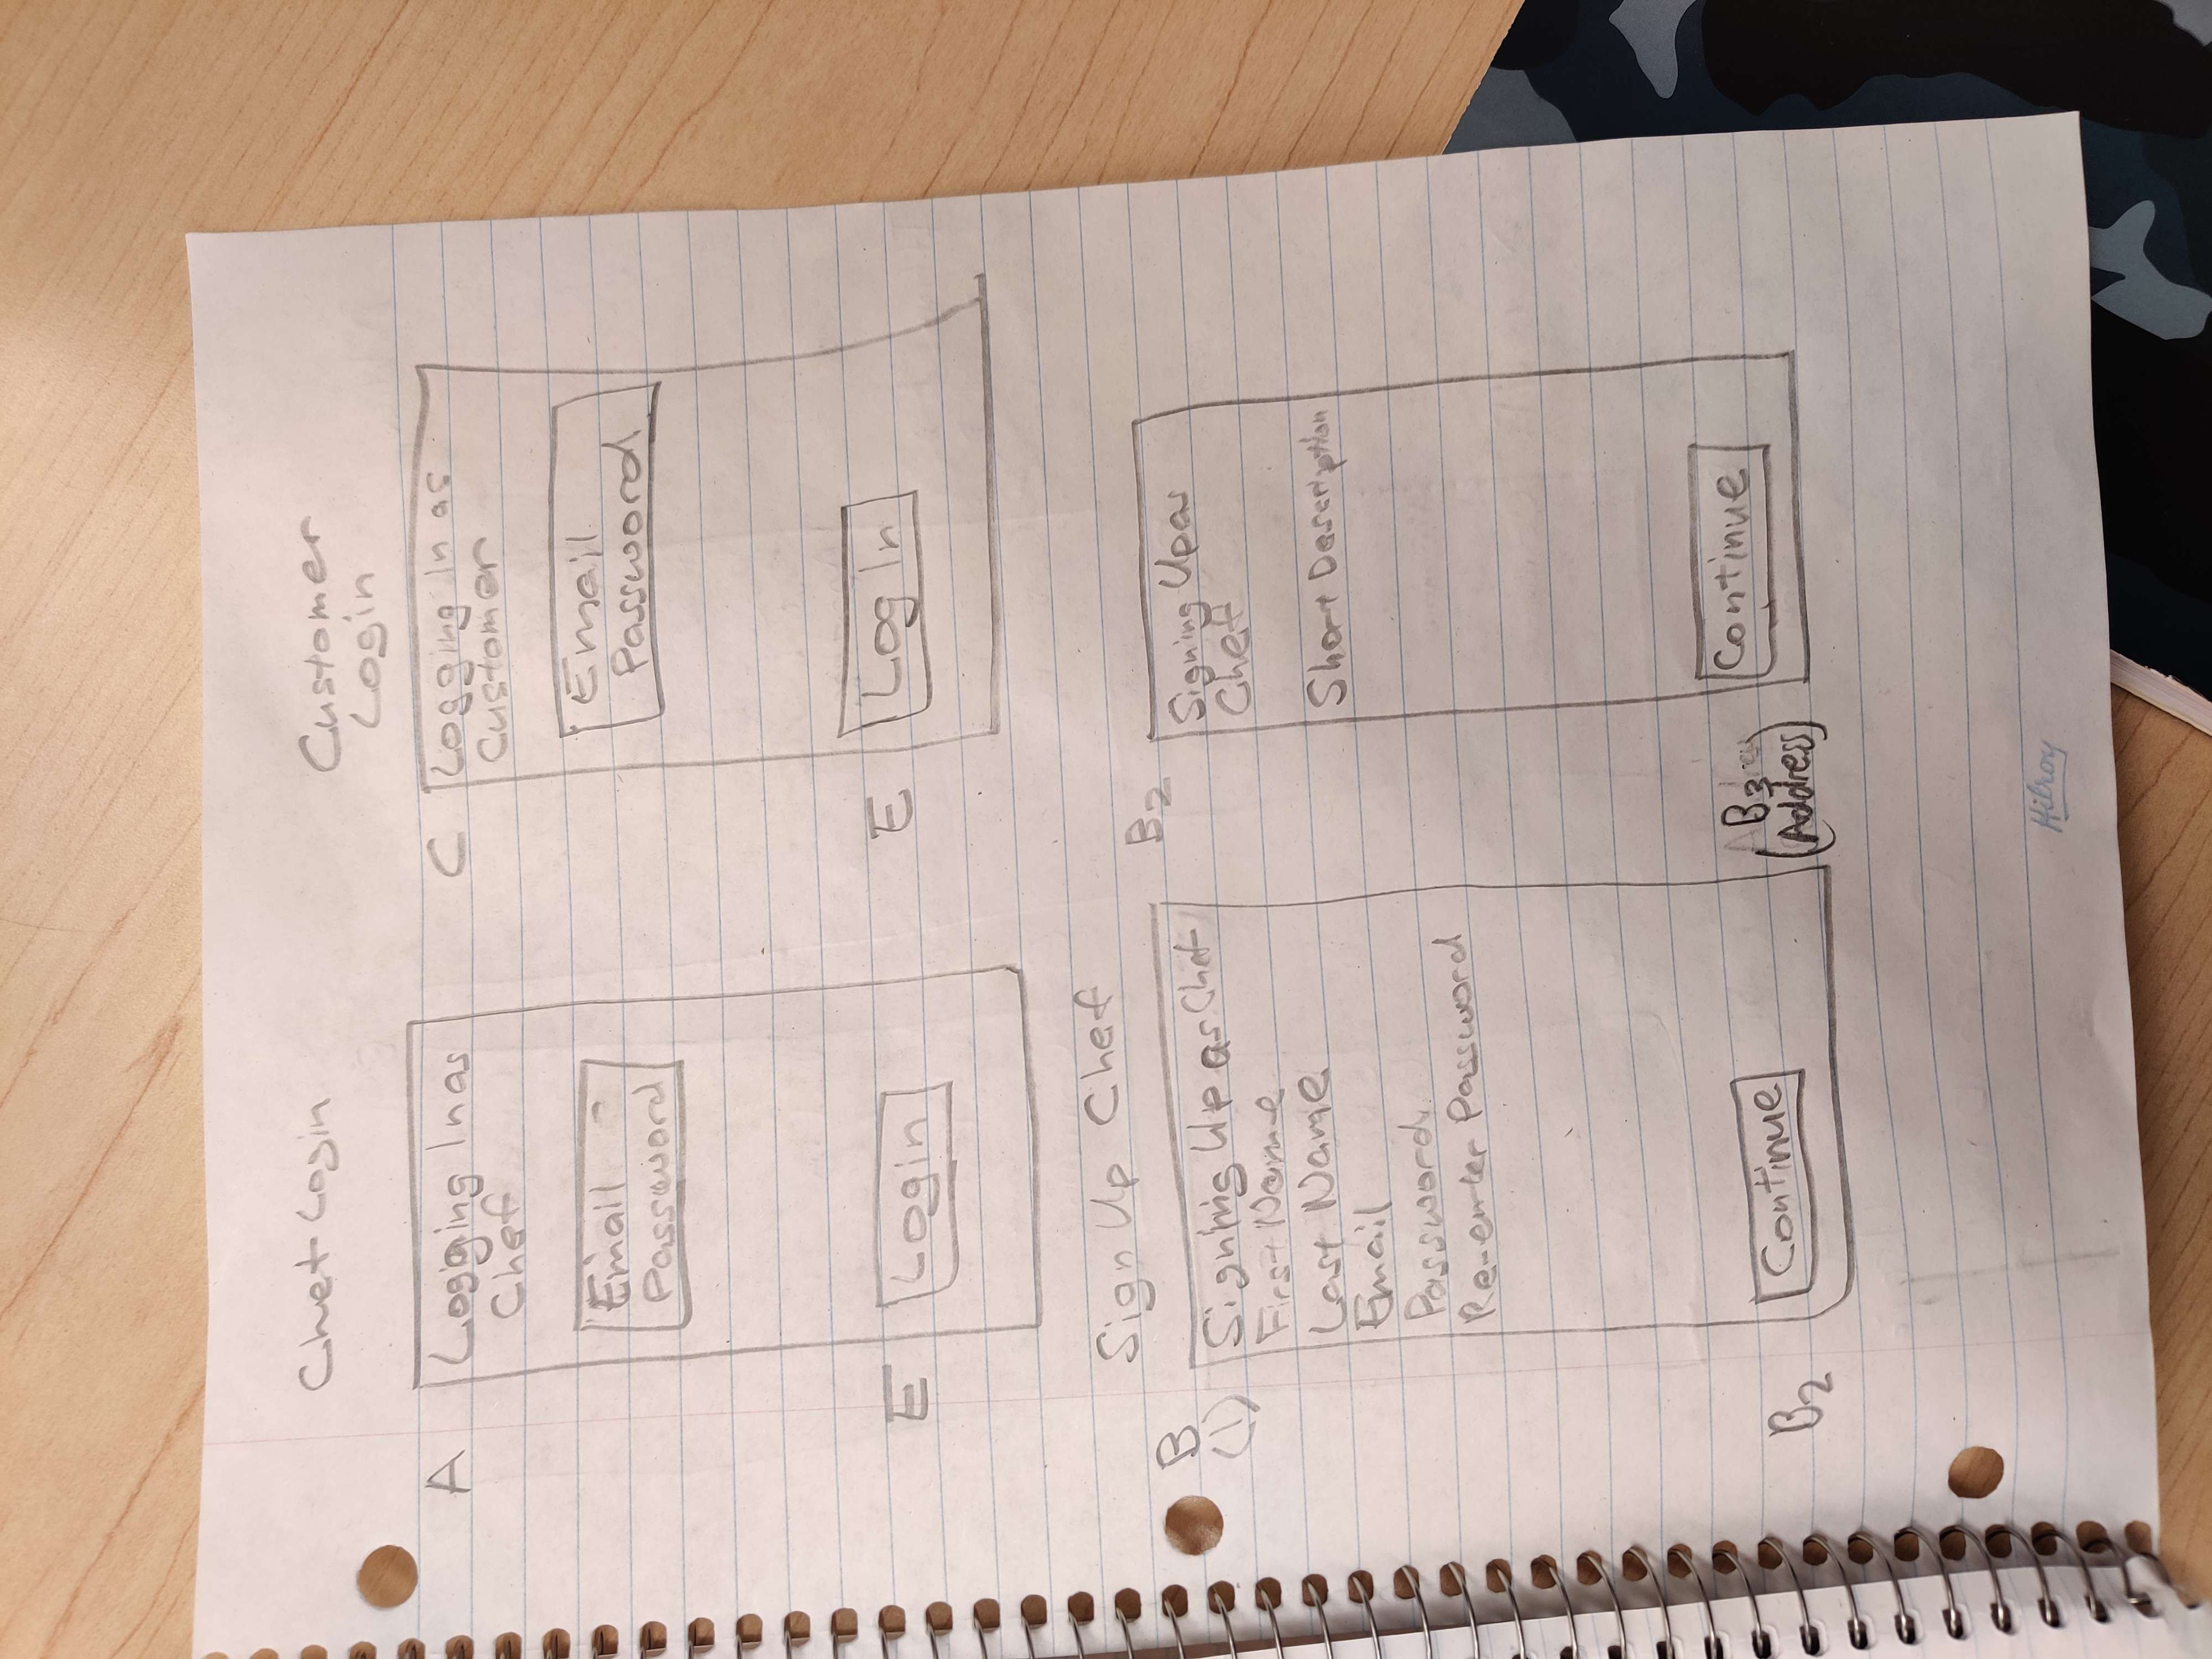 Chef Login
A
Logging In as
Chef
Email
Password
E
Login
Customer
Login
C
Logging In as
Customer
Email
Password
E
Log In
Sign Up Chef
B
(1)
Signing Up as Chef
First Name
Last Name
Email
Password
Re-enter Password
B2
Continue
B2
Signing Up as
Chef
Short Description
B3
(Address)
Continue
Hilroy